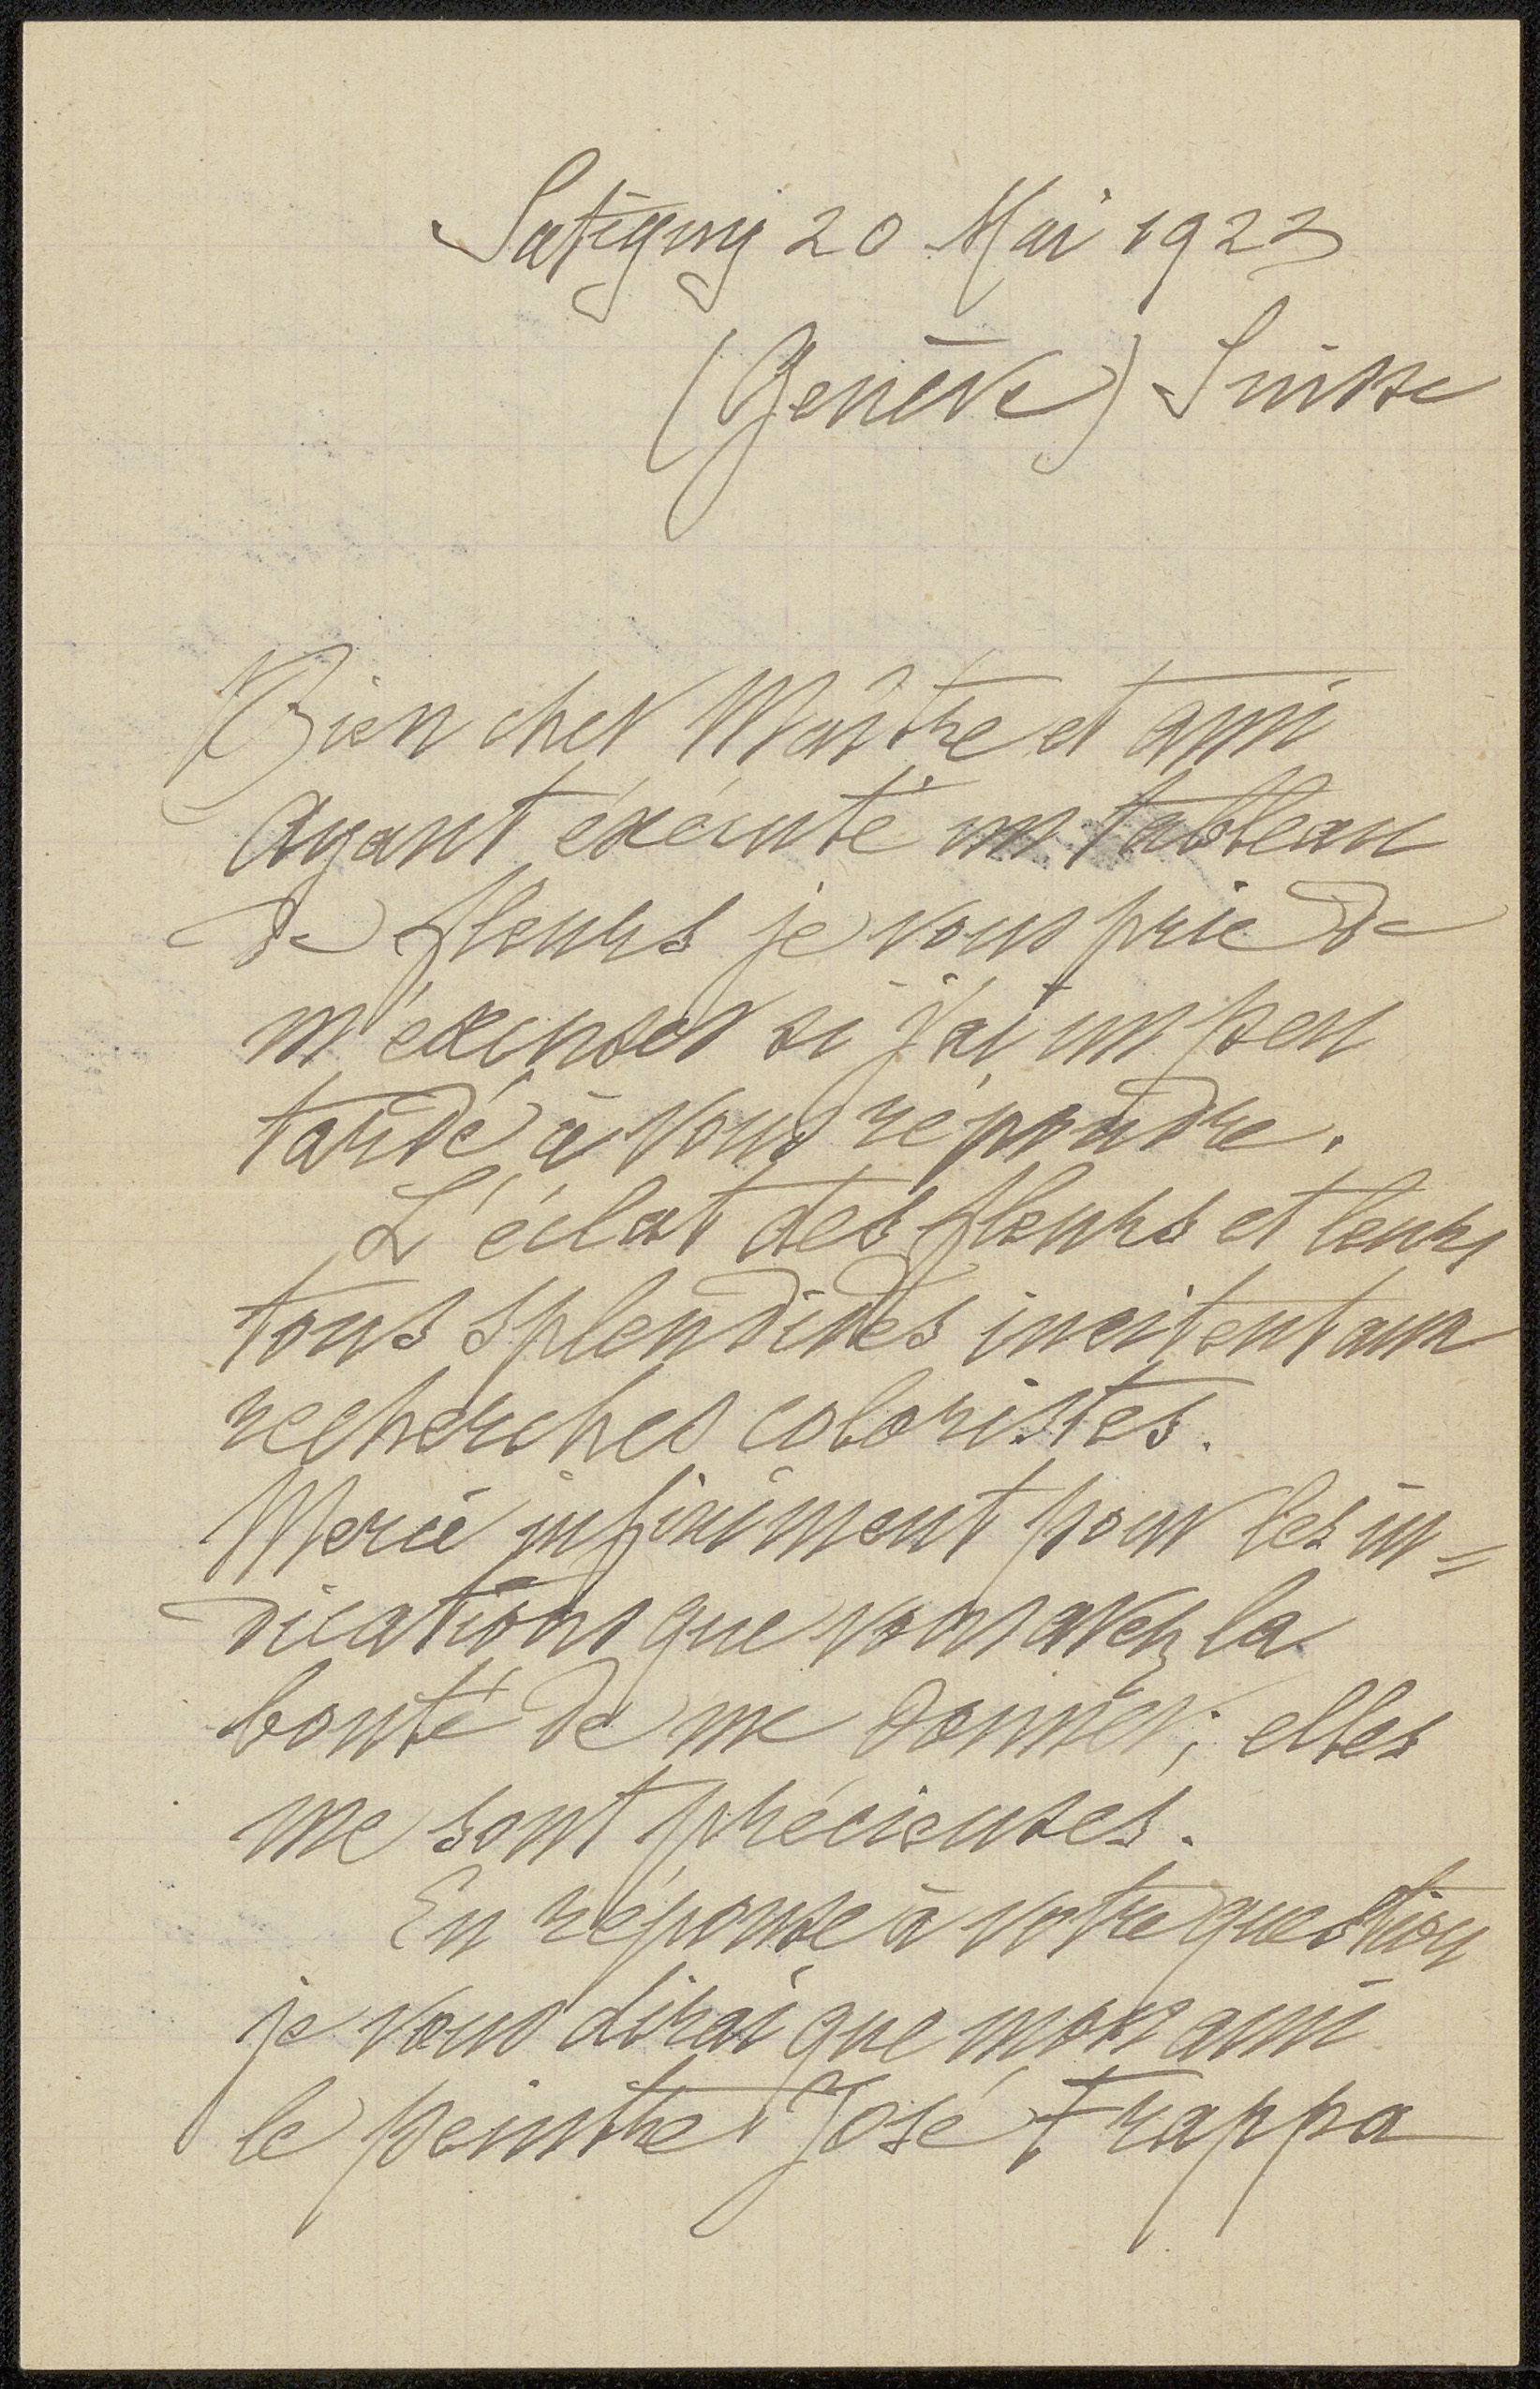 Satigny 20 Mai 1922
(Genève) Suisse
Bien cher Maître et ami
Ayant éxécuté un tableau
de fleurs je vous prie de
m'éxcuser si j'ai un peu
tardé à vous répondre.
L'éclat des fleurs et leurs
tons splendides incitent aux
recherches coloristes.
Merci infiniment pour les in=
dications que vous avez la
bonté de me donner; elles
me sont précieuses.
En réponse à votre question
je vous dirai que mon ami
le peintre José Frappa